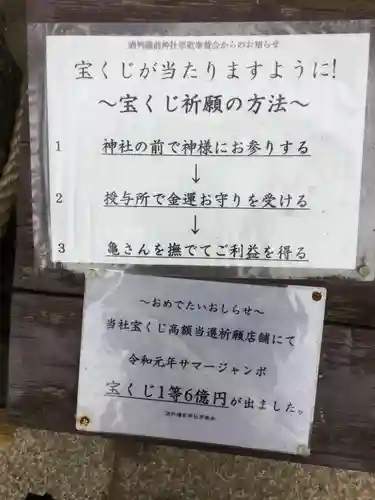 酒列磯前神社崇敬奉賛会からのお知らせ
宝くじが当たりますように!
～宝くじ祈願の方法～
1 神社の前で神様にお参りする
↓
2 授与所で金運お守りを受ける
↓
3 亀さんを撫でてご利益を得る
～おめでたいおしらせ～
当社宝くじ高額当選祈願店舗にて
令和元年サマージャンボ
宝くじ1等6億円が出ました。